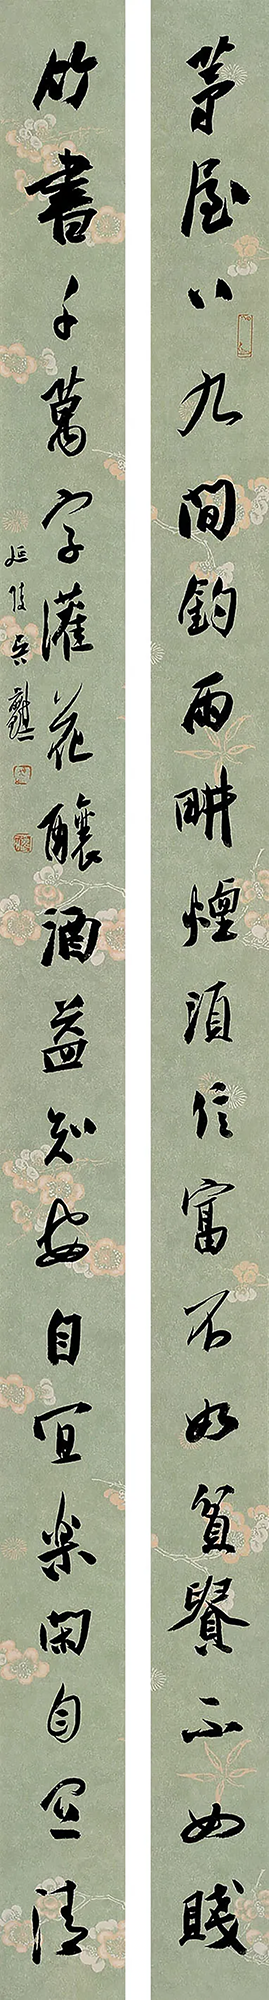 茅屋八九間釣雨畊煙須信富不如貧貴不如賤
竹書千萬字灌花釀酒益知安自宜樂閑自宜清
延陵吳